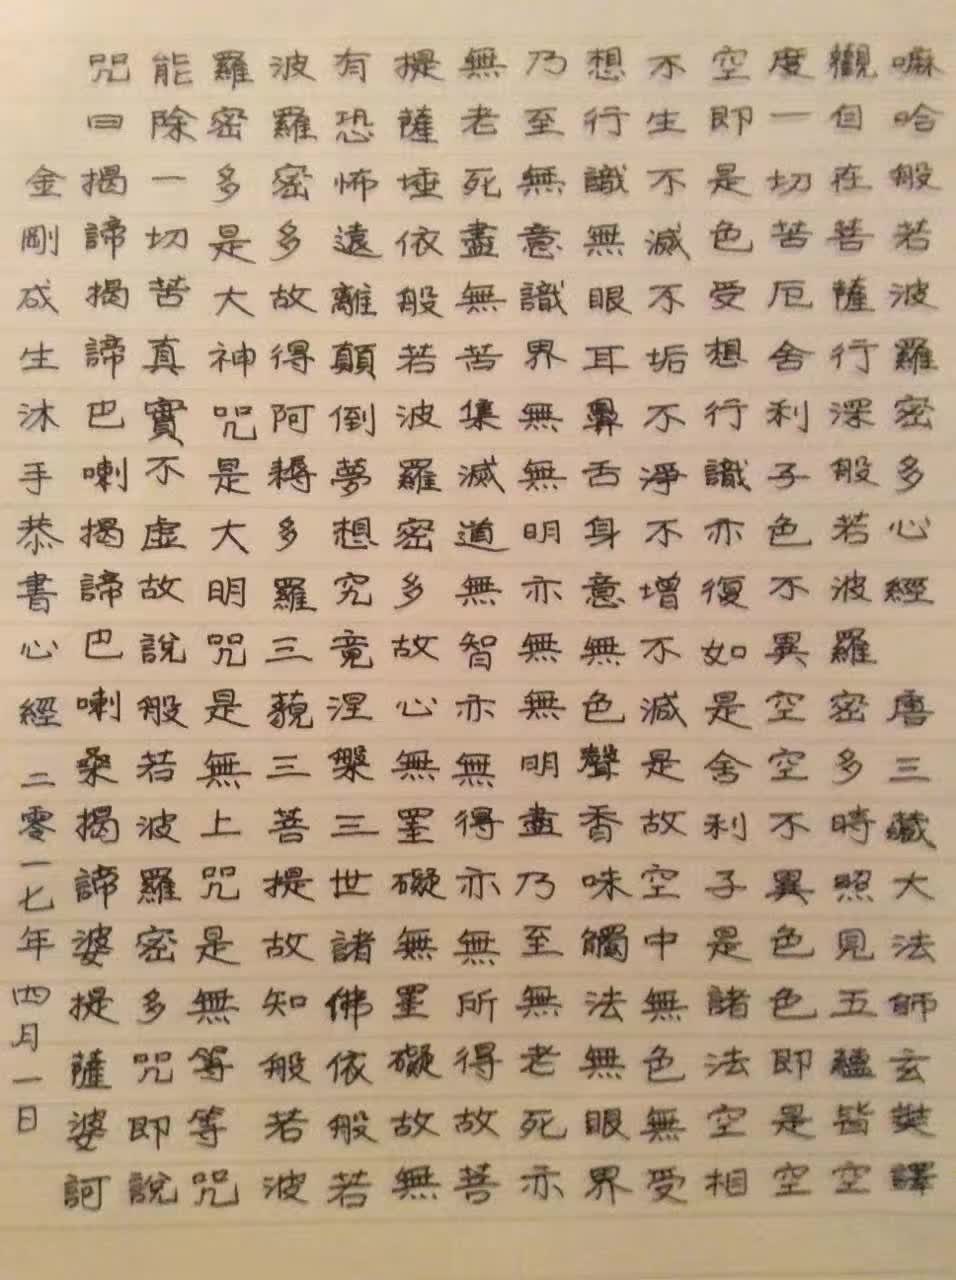 嘛哈般若波羅密多心經 唐三藏大法師玄奘譯
觀自在菩薩行深般若波羅密多時照見五蘊皆空
度一切苦厄舍利子色不異空空不異色色即是空
空即是色受想行識亦復如是舍利子是諸法空相
不生不滅不垢不淨不增不減是故空中無色無受
想行識無眼耳鼻舌身意無色聲香味觸法無眼界
乃至無意識界無無明亦無無明盡乃至無老死亦
無老死盡無苦集滅道無智亦無得亦無所得故菩
提薩埵依般若波羅密多故心無罣礙無罣礙故無
有恐怖遠離顛倒夢想究竟涅槃三世諸佛依般若
波羅密多故得阿耨多羅三藐三菩提故知般若波
羅密多是大神咒是大明咒是無上咒是無等等咒
能除一切苦真實不虛故說般若波羅密多咒即說
咒曰揭諦揭諦巴喇揭諦巴喇桑揭諦婆提薩婆訶
金剛成生沐手恭書心經 二零一七年四月一日